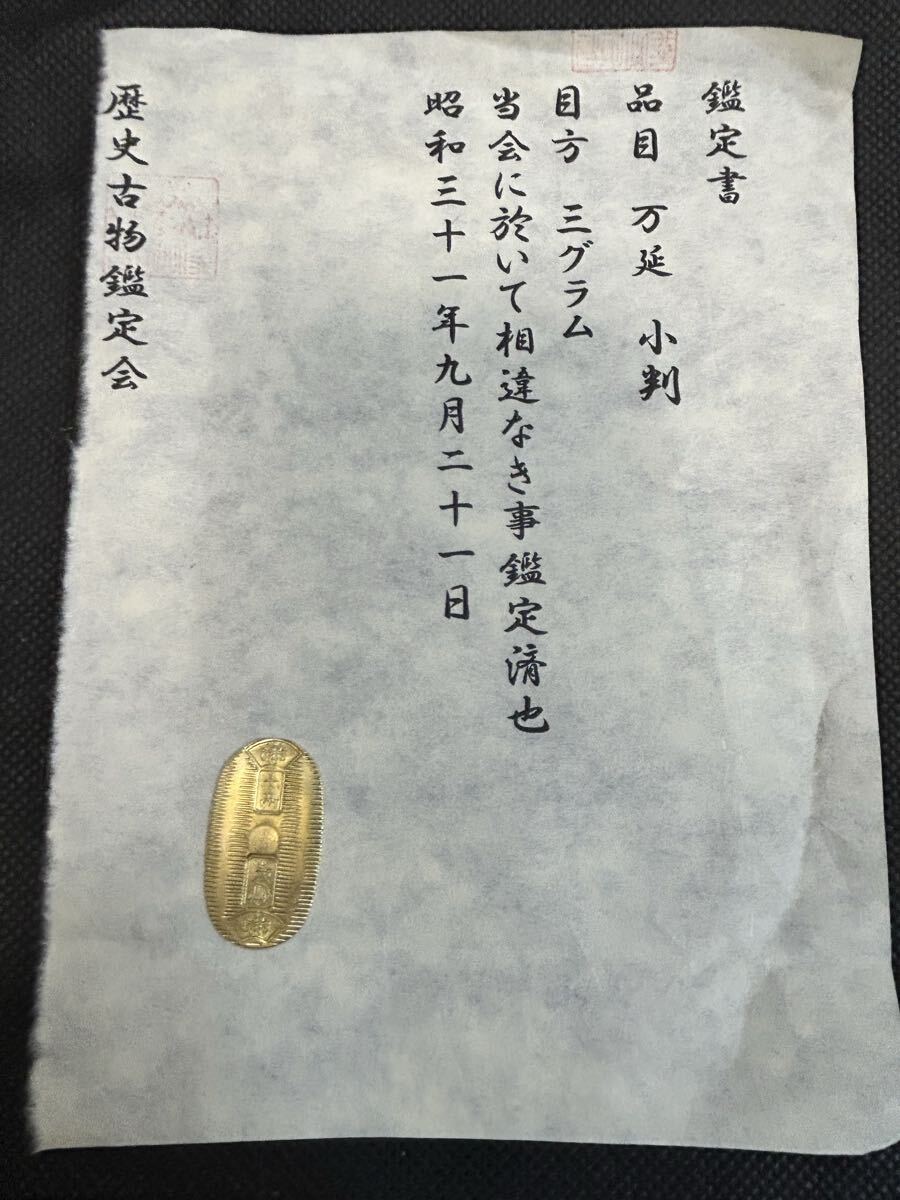 鑑定書
品目 万延 小判
目方 三グラム
当会に於いて相違なき事鑑定済也
昭和三十一年九月二十一日
歴史古物鑑定会